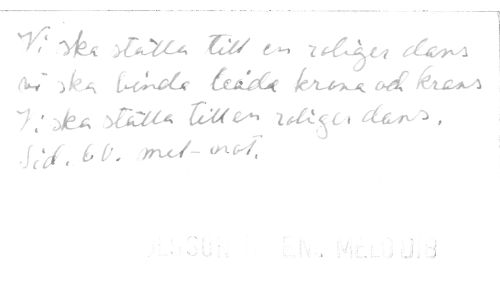 Vi ska ställa till en roliger dans
vi ska binda både krona och krans
Vi ska ställa till en roliger dans.
Sid. 60. mel-